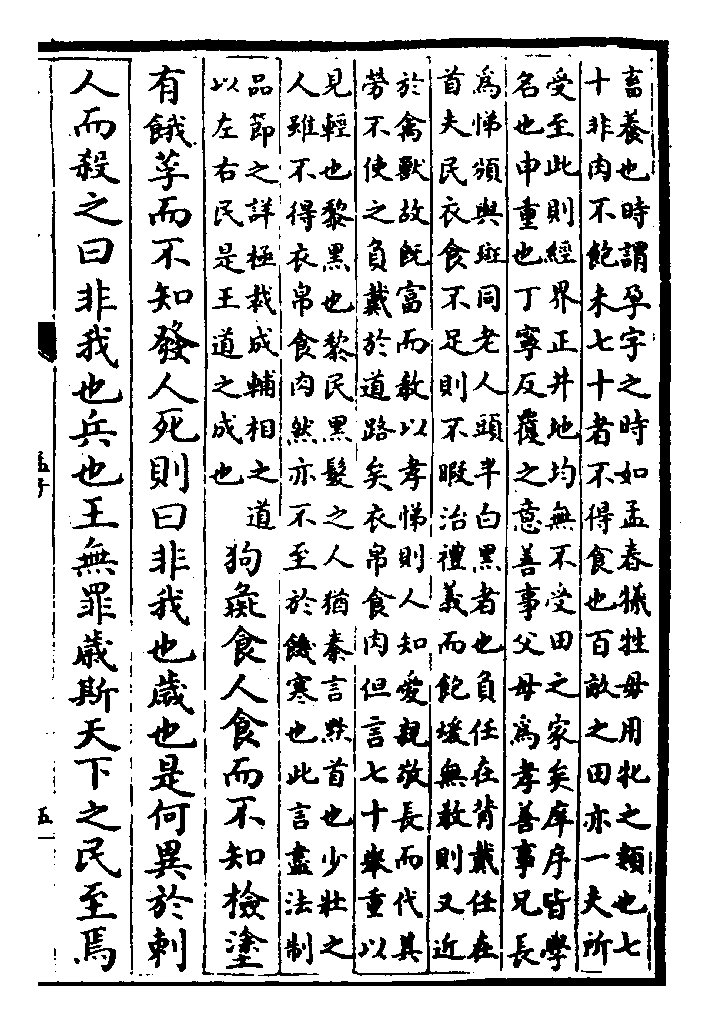 畜養也時謂孕字之時如孟春犧牲毋用牝之類也七
十非肉不飽未七十者不得食也百畝之田亦一夫所
受至此則經界正井地均無不受田之家矣庠序皆學
名也申重也丁寧反覆之意善事父母爲孝善事兄長
爲悌頒與斑同老人頭半白黑者也負任在背戴任在
首夫民衣食不足則不暇治禮義而飽煖無教則又近
於禽獸故既富而教以孝悌則人知愛親敬長而代其
勞不使之負戴於道路矣衣帛食肉但言七十舉重以
見輕也黎黑也黎民黑髮之人猶秦言黔首也少壯之
人雖不得衣帛食肉然亦不至於饑寒也此言盡法制
品節之詳極裁成輔相之道
以左右民是王道之成也
狗彘食人食而不知檢塗
有餓莩而不知發人死則曰非我也歲也是何異於刺
人而殺之曰非我也兵也王無罪歲斯天下之民至焉
孟子
五